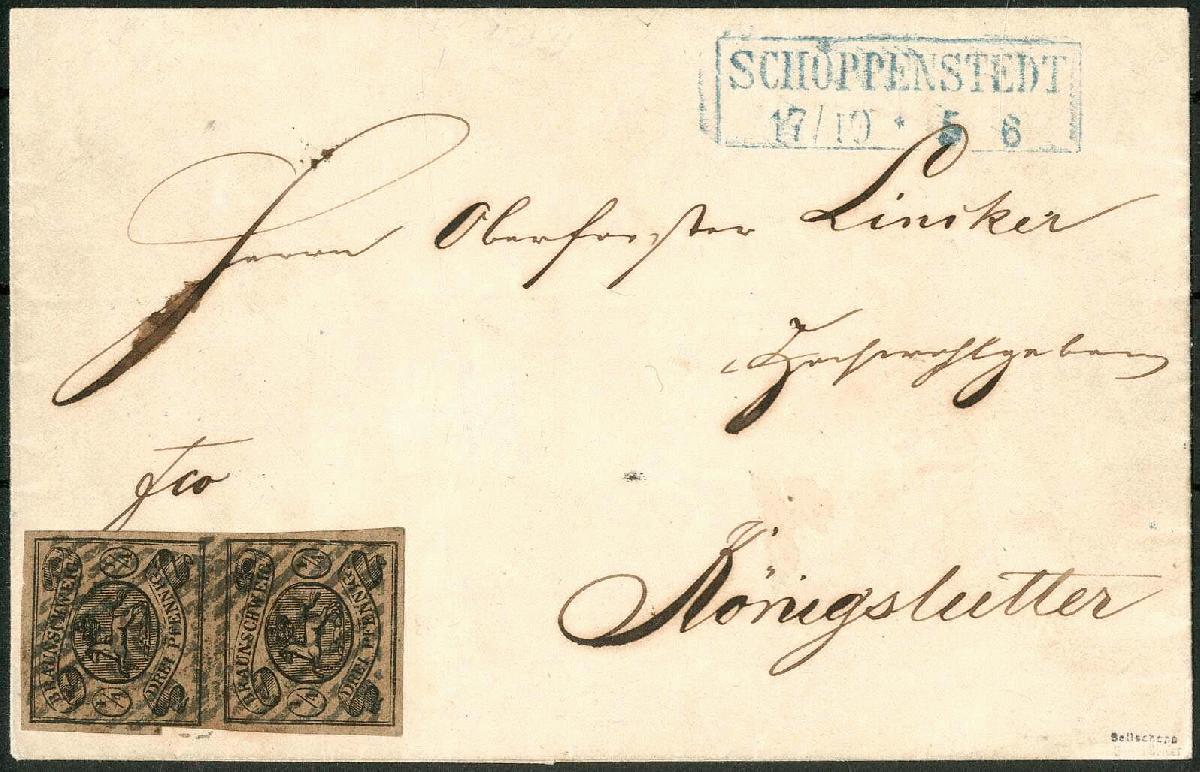 SCHÖPPENSTEDT
17/10 * 5 6
Herrn Oberförster Liniker
Hochwohlgeboren
fco
Königslutter
BRAUNSCHWEIG 1/4 DREI PFENNIG 1/4
BRAUNSCHWEIG 1/4 DREI PFENNIG 1/4